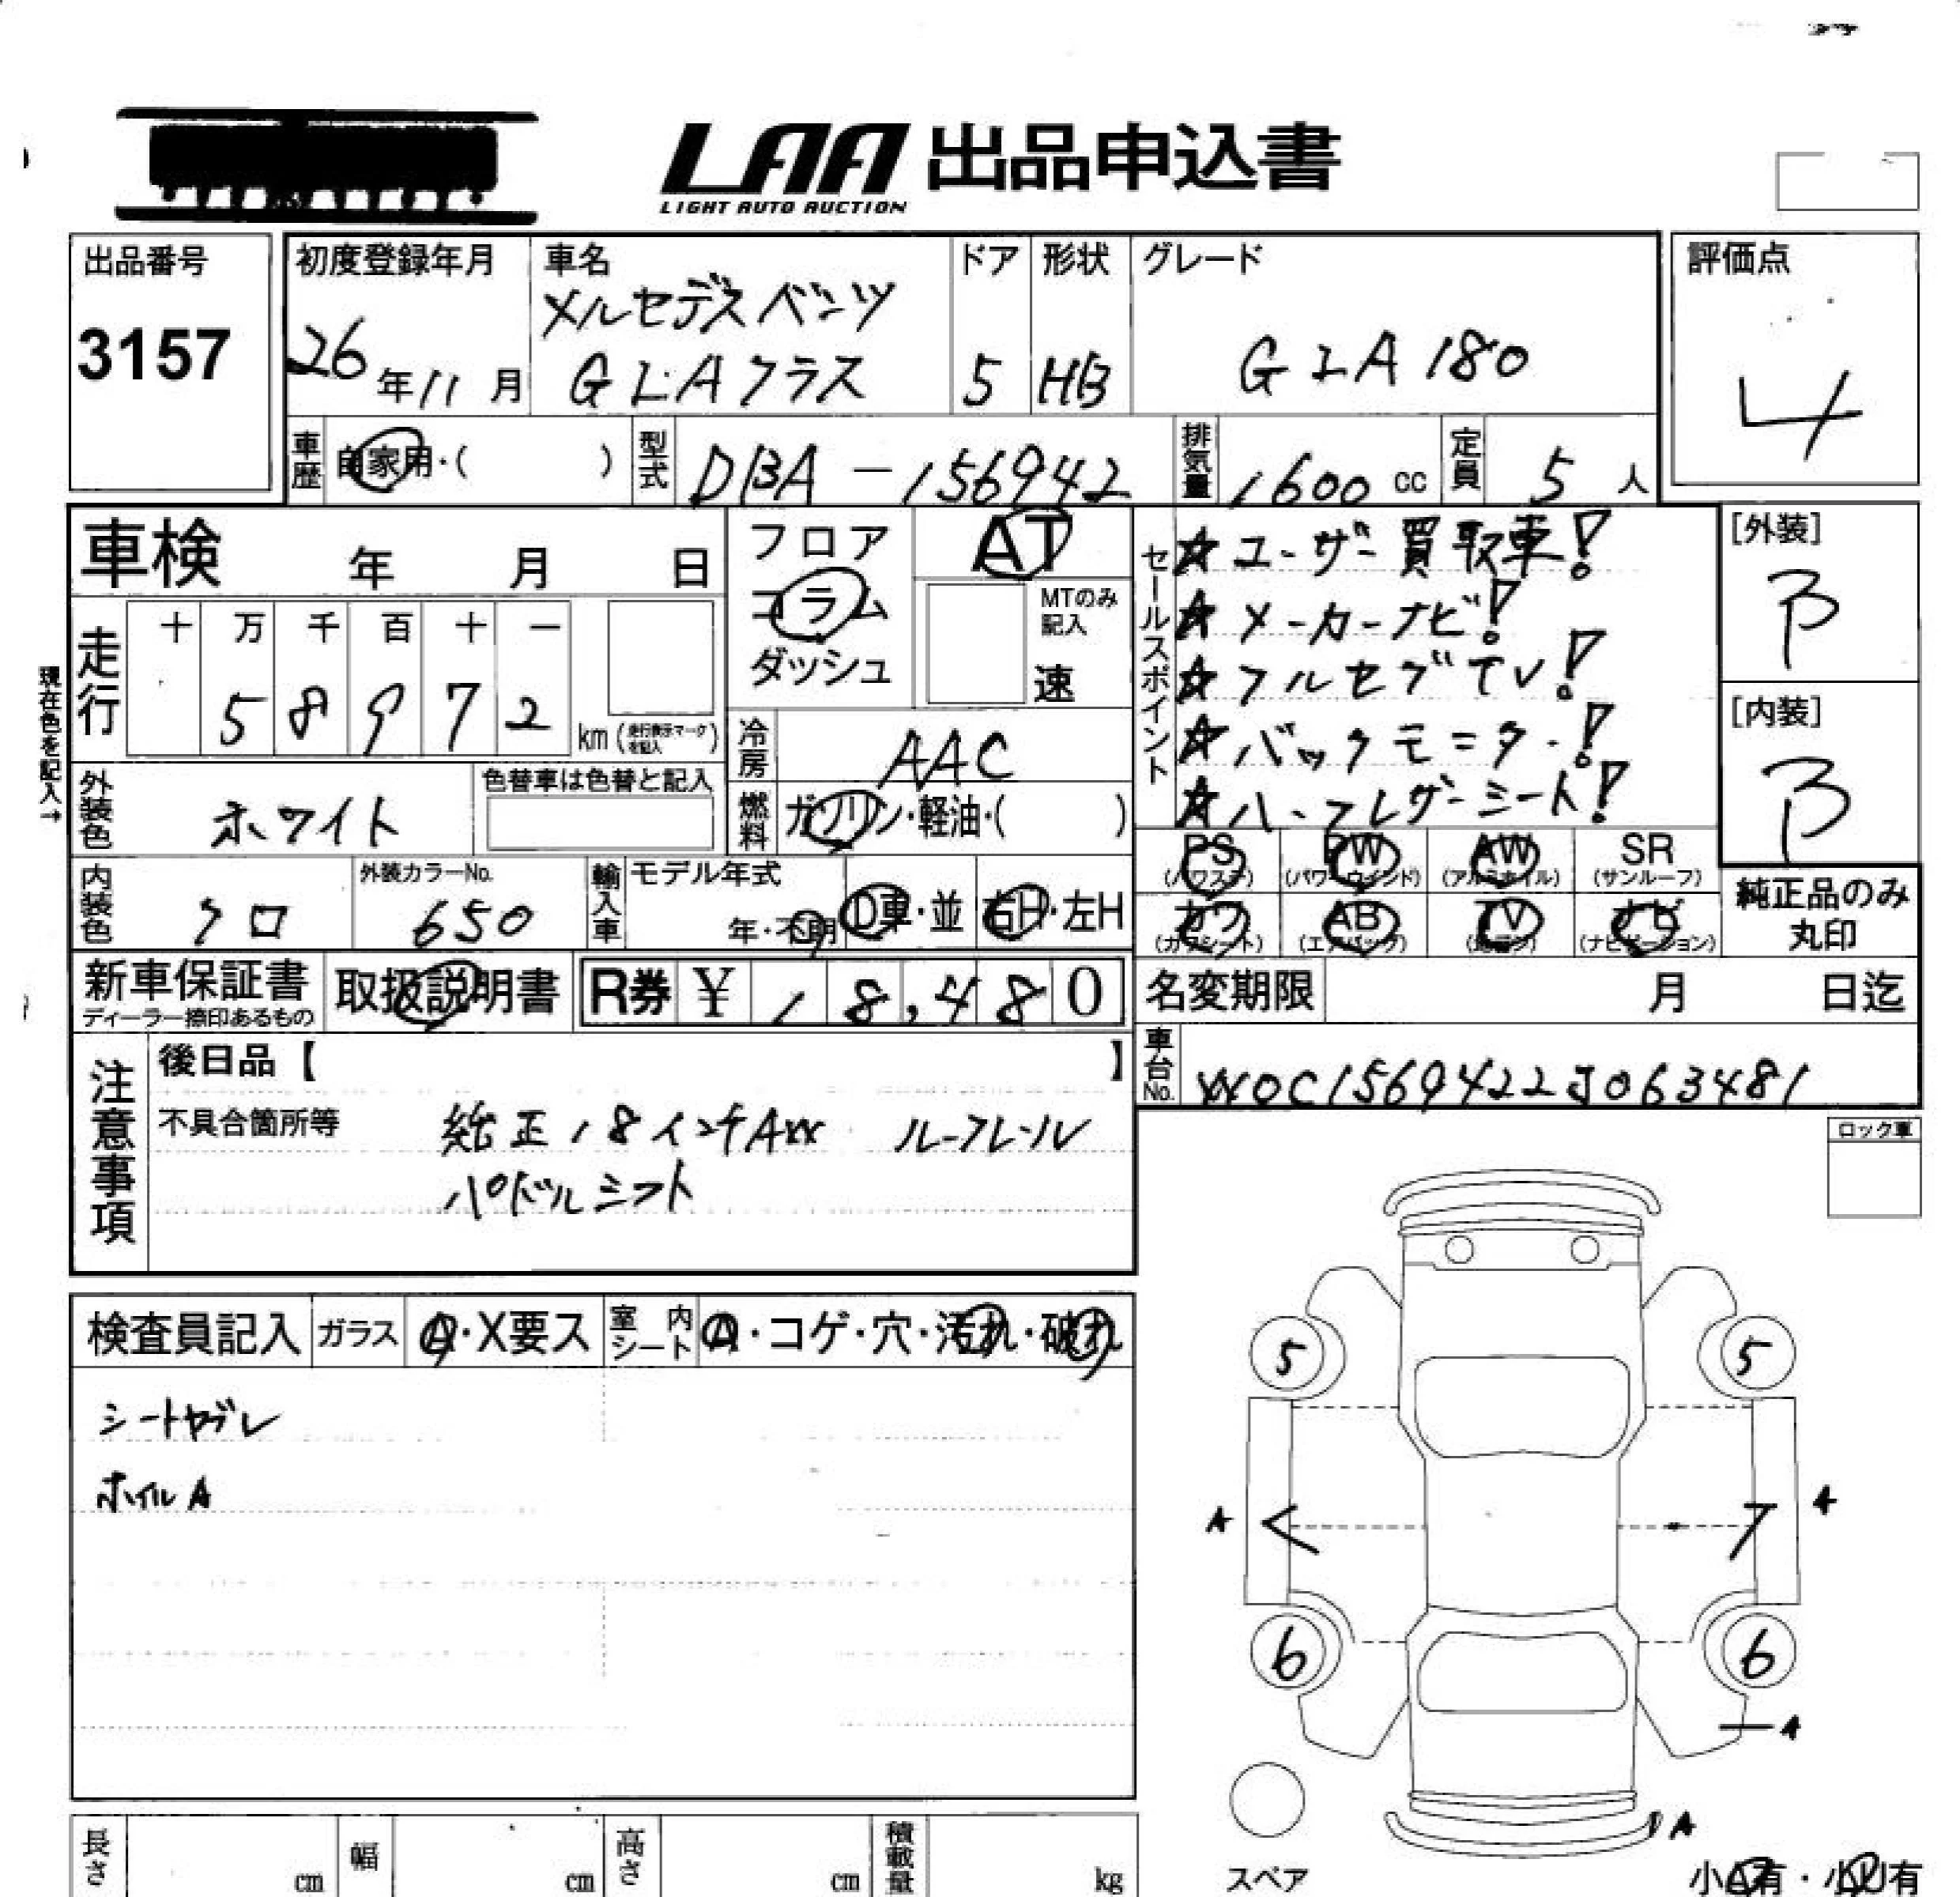 LAA 出品申込書
LIGHT AUTO AUCTION
出品番号
3157
初度登録年月
26年11月
車名
メルセデスベンツ
GLAクラス
ドア
5
形状
HB
グレード
GLA180
評価点
4
車歴 自家用・( )
型式 DBA-156942
排気量 1600 cc
定員 5 人
車検 年 月 日
フロア
コラム
ダッシュ
AT
MTのみ記入
速
現在色を記入→
走行
十 万 千 百 十 一
5 8 9 7 2 km (走行表示マークを記入)
冷房 AAC
外装色 ホワイト
色替車は色替と記入
燃料 ガソリン・軽油・( )
内装色 クロ
外装カラーNo.
650
輸入車
モデル年式
年・不明
D車・並
右H・左H
セールスポイント
☆ユーザー買取車!
☆メーカーナビ!
☆フルセグTV!
☆バックモニター!
☆ハーフレザーシート!
[外装]
B
[内装]
B
PS
(パワステ)
PW
(パワーウィンド)
AW
(アルミホイル)
SR
(サンルーフ)
カワ
(カワシート)
AB
(エアバッグ)
TV
ナビ
(ナビゲーション)
純正品のみ
丸印
新車保証書
ディーラー捺印あるもの
取扱説明書
R券 ¥ 18,480
名変期限 月 日迄
車台No. WDC1569422J063481
注意事項
後日品【 】
不具合箇所等
純正18インチAW ルーフレール
パドルシフト
ロック車
検査員記入
ガラス A・X要ス
室内シート A・コゲ・穴・汚れ・破れ
シートヤブレ
ホイルA
5 5
A A
6 6
A
A
スペア
小A有・小U有
長さ cm
幅 cm
高さ cm
積載量 kg